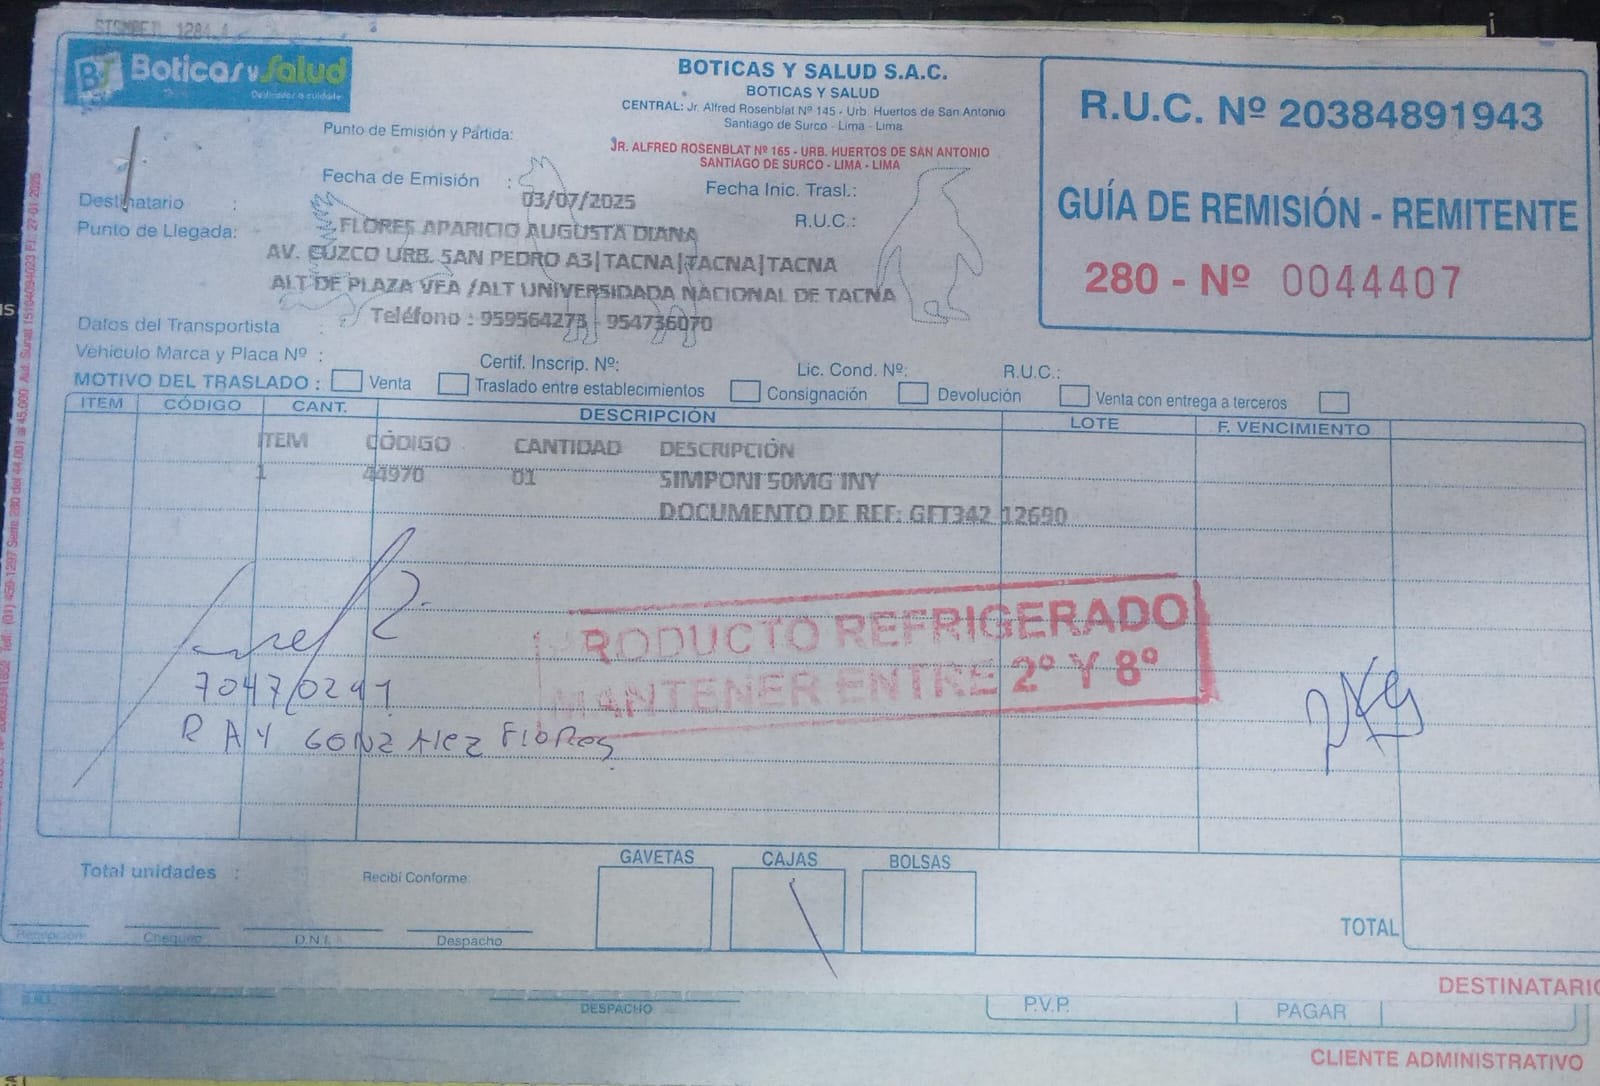 STSMBEIL 1284
BS Boticas y Salud
Dedicados a cuidarte
BOTICAS Y SALUD S.A.C.
BOTICAS Y SALUD
CENTRAL: Jr. Alfred Rosenblat Nº 145 - Urb. Huertos de San Antonio
Santiago de Surco - Lima - Lima
Punto de Emisión y Partida:
JR. ALFRED ROSENBLAT Nº 165 - URB. HUERTOS DE SAN ANTONIO
SANTIAGO DE SURCO - LIMA - LIMA
R.U.C. Nº 20384891943
GUÍA DE REMISIÓN - REMITENTE
280 - Nº 0044407
Fecha de Emisión : 03/07/2025 Fecha Inic. Trasl.:
Destinatario : FLORES APARICIO AUGUSTA DIANA R.U.C.:
Punto de Llegada: AV. CUZCO URB. SAN PEDRO A3|TACNA|TACNA|TACNA
ALT DE PLAZA VEA /ALT UNIVERSIDADA NACIONAL DE TACNA
Teléfono : 959564273 - 954736070
Datos del Transportista :
Vehículo Marca y Placa Nº : Certif. Inscrip. Nº: Lic. Cond. Nº: R.U.C.:
MOTIVO DEL TRASLADO : Venta Traslado entre establecimientos Consignación Devolución Venta con entrega a terceros
ITEM CÓDIGO CANT. DESCRIPCIÓN LOTE F. VENCIMIENTO
ITEM CÓDIGO CANTIDAD DESCRIPCIÓN
1 44970 01 SIMPONI 50MG INY
DOCUMENTO DE REF: GFT342 12690
PRODUCTO REFRIGERADO
MANTENER ENTRE 2º Y 8º
70470291
RAY GONZALEZ FLORES
2Kg
Total unidades : Recibí Conforme: GAVETAS CAJAS BOLSAS
TOTAL
Recepción Chequeo D.N.I. Despacho
DESTINATARIO
DESPACHO P.V.P. PAGAR
CLIENTE ADMINISTRATIVO